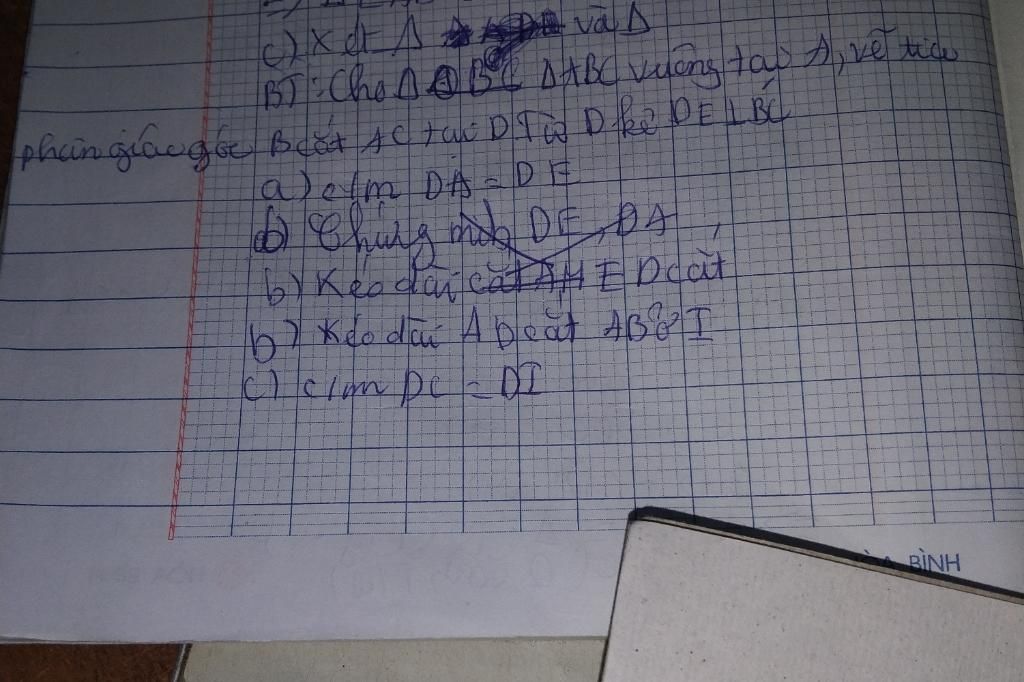 c) Xét Δ và Δ
BT: Cho Δ ΔABC vuông tại A, vẽ tia
phân giác góc B cắt AC tại D Từ D kẻ DE ⊥ BC
a) c/m DA = DE
b) Chứng minh DE, DA
b) Kéo dài cắt AH E D cắt
b) Kéo dài A D cắt AB ở I
c) c/m DC = DI
BÌNH